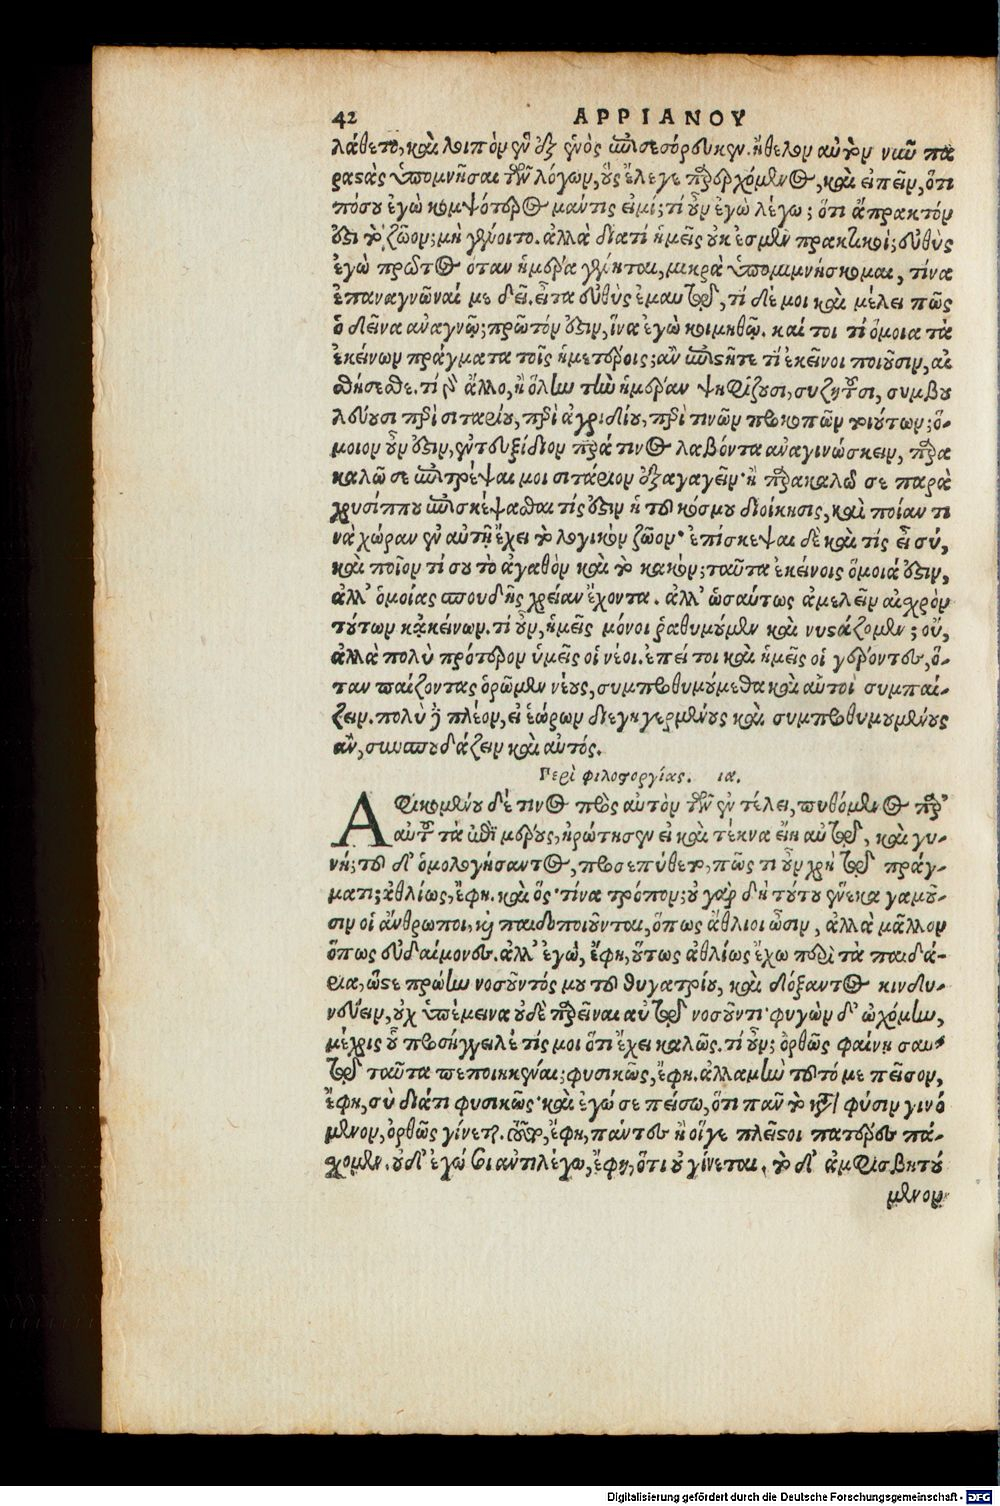 42 ΑΡΡΙΑΝΟΥ
λάθετο, καὶ λοιπὸν ἓν ἐξ ἑνὸς ἐπισεσώρευκεν. ἤθελον αὐτὸν νῦν πα
ραστὰς ὑπομνῆσαι τῶν λόγων, οὓς ἔλεγε παρερχόμενος, καὶ εἰπεῖν, ὅτι
πόσου ἐγὼ κομψότερος μάντις εἰμί; τί οὖν ἐγὼ λέγω; ὅτι ἄπρακτόν
ἐστι τὸ ζῶον; μὴ γένοιτο. ἀλλὰ διατί ἡμεῖς οὐκ ἐσμὲν πρακτικοί; εὐθὺς
ἐγὼ πρῶτος ὅταν ἡμέρα γένηται, μικρὰ ὑπομιμνήσκομαι, τίνα
ἐπαναγνῶναί με δεῖ. εἶτα εὐθὺς ἐμαυτῷ, τί δέ μοι καὶ μέλει πῶς
ὁ δεῖνα ἀναγνῷ; πρῶτόν ἐστιν, ἵνα ἐγὼ κοιμηθῶ. καί τοι τί ὅμοια τὰ
ἐκείνων πράγματα τοῖς ἡμετέροις; ἂν ἐπιστῆτε τί ἐκεῖνοι ποιοῦσιν, αἰ
σθήσεσθε. τί γὰρ ἄλλο, ἢ ὅλην τὴν ἡμέραν ψηφίζουσι, συζητοῦσι, συμβου
λεύουσι περὶ σιταρίου, περὶ ἀγριδίου, περὶ τινῶν προκοπῶν τοιούτων; ὅ-
μοιον οὖν ἐστιν, ἐντευξίδιον παρά τινος λαβόντα ἀναγινώσκειν, παρα
καλῶ σε ἐπιτρέψαι μοι σιτάριον ἐξαγαγεῖν· ἢ παρακαλῶ σε παρὰ
χρυσίππου ἐπισκέψασθαι τίς ἐστιν ἡ τοῦ κόσμου διοίκησις, καὶ ποίαν τι
νὰ χώραν ἐν αὐτῇ ἔχει τὸ λογικὸν ζῶον· ἐπίσκεψαι δὲ καὶ τίς εἶ σύ,
καὶ ποῖόν τί σου τὸ ἀγαθὸν καὶ τὸ κακόν; ταῦτα ἐκείνοις ὅμοιά ἐστιν,
ἀλλ' ὁμοίας σπουδῆς χρείαν ἔχοντα. ἀλλ' ὡσαύτως ἀμελεῖν αἰσχρὸν
τούτων κἀκείνων. τί οὖν, ἡμεῖς μόνοι ῥαθυμοῦμεν καὶ νυστάζομεν; οὔ,
ἀλλὰ πολὺ πρότερον ὑμεῖς οἱ νέοι. ἐπεί τοι καὶ ἡμεῖς οἱ γέροντες, ὅ-
ταν παίζοντας ὁρῶμεν νέους, συμπροθυμούμεθα καὶ αὐτοὶ συμπαί-
ζειν. πολὺ δὲ πλέον, εἰ ἑώρων διεγηγερμένους καὶ συμπροθυμουμένους
ἂν, συσπουδάζειν καὶ αὐτός.
Περὶ φιλοστοργίας. ια.
Ἀφικομένου δέ τινος πρὸς αὐτὸν τῶν ἐν τέλει, πυθόμενος παρ'
αὐτοῦ τὰ ἐπὶ μέρους, ἠρώτησεν εἰ καὶ τέκνα εἴη αὐτῷ, καὶ γυ-
νή; τοῦ δ' ὁμολογήσαντος, προσεπύθετο, πῶς τι οὖν χρῇ τῷ πράγ-
ματι; ἀθλίως, ἔφη. καὶ ὅς· τίνα τρόπον; οὐ γὰρ δὴ τούτου ἕνεκα γαμοῦ-
σιν οἱ ἄνθρωποι, καὶ παιδοποιοῦνται, ὅπως ἄθλιοι ὦσιν, ἀλλὰ μᾶλλον
ὅπως εὐδαίμονες. ἀλλ' ἐγώ, ἔφη, οὕτως ἀθλίως ἔχω περὶ τὰ παιδά-
ρια, ὥστε πρώην νοσοῦντός μου τοῦ θυγατρίου, καὶ δόξαντος κινδυ-
νεύειν, οὐχ ὑπέμεινα οὐδὲ παρεῖναι αὐτῷ νοσοῦντι· φυγὼν δ' ᾠχόμην,
μέχρις οὗ προσήγγειλέ τίς μοι ὅτι ἔχει καλῶς. τί οὖν; ὀρθῶς φαίνῃ σαυ-
τῷ ταῦτα πεποιηκέναι; φυσικῶς, ἔφη. ἀλλαμὴν τοῦτό με πεῖσον,
ἔφη, σὺ διάτι φυσικῶς· καὶ ἐγώ σε πείσω, ὅτι πᾶν τὸ κατὰ φύσιν γινό
μενον, ὀρθῶς γίνεται. τοῦτο, ἔφη, πάντες ἢ οἵγε πλεῖστοι πατέρες πά-
σχομεν. οὐδ' ἐγώ σοι ἀντιλέγω, ἔφη, ὅτι οὐ γίνεται. τὸ δ' ἀμφισβητού
μενον
Digitalisierung gefördert durch die Deutsche Forschungsgemeinschaft - DFG